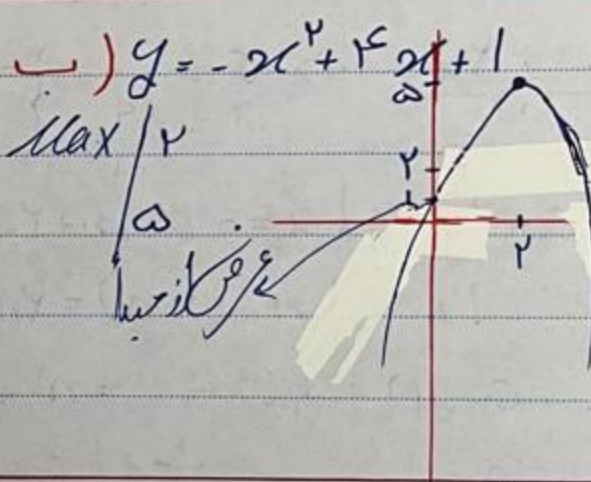 ب) y = -x² + ۴x + 1
Max | ۲
۵
عرض از مبدا
۵
۲
۱
۲